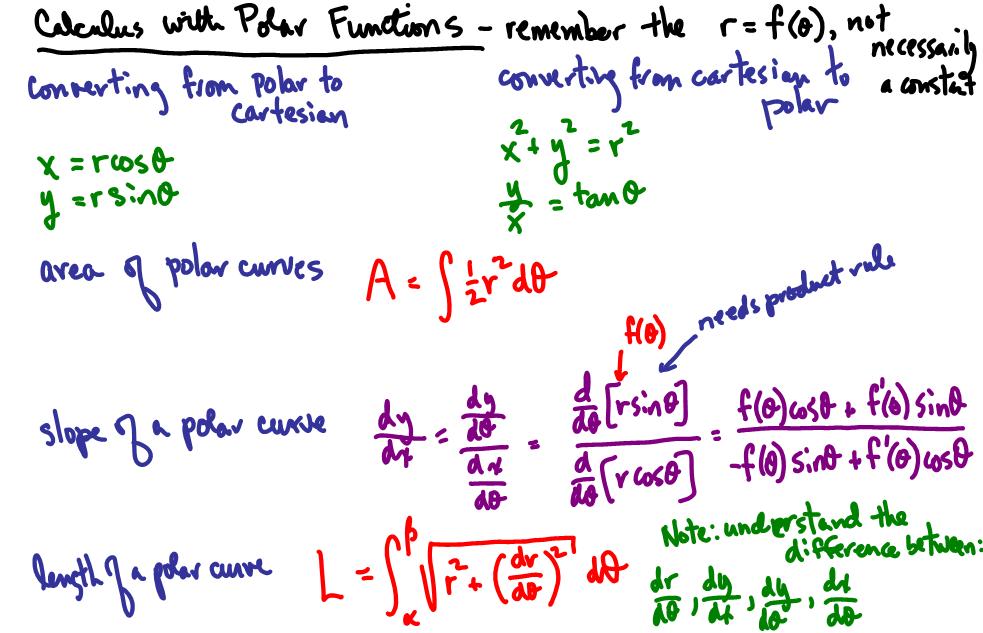 Calculus with Polar Functions - remember the r = f(θ), not necessarily a constant
converting from polar to cartesian
x = rcosθ
y = rsinθ
converting from cartesian to polar
x² + y² = r²
y/x = tanθ
area of polar curves A = ∫ 1/2 r² dθ
f(θ)
needs product rule
slope of a polar curve dy/dx = (dy/dθ)/(dx/dθ) = (d/dθ [rsinθ])/(d/dθ [rcosθ]) = (f(θ)cosθ + f'(θ)sinθ)/(-f(θ)sinθ + f'(θ)cosθ)
length of a polar curve L = ∫_α^β √(r² + (dr/dθ)²) dθ
Note: understand the
difference between:
dr/dθ, dy/dx, dy/dθ, dx/dθ